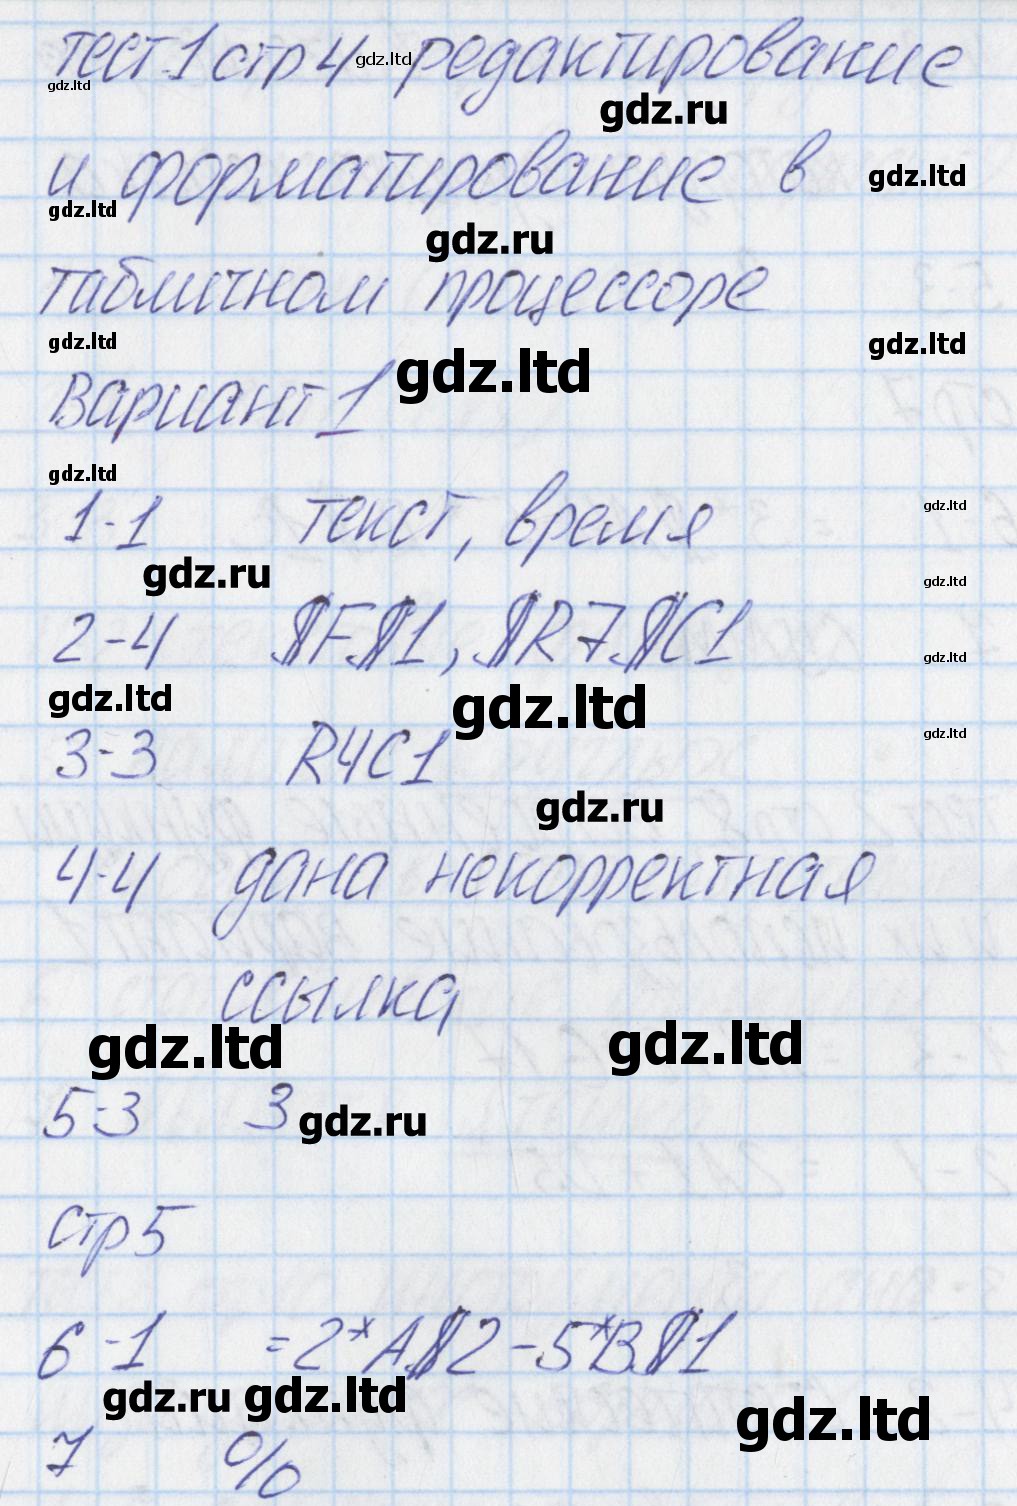 тест 1 стр 4 редактирование
и форматирование в
табличном процессоре
Вариант 1
1-1 текст, время
2-4 $F$1, $R7$C1
3-3 R4C1
4-4 дана некорректная
ссылка
5-3 3
стр 5
6-1 =2*A$2-5*B$1
7 %
gdz.ltd
gdz.ltd
gdz.ru
gdz.ltd
gdz.ltd
gdz.ru
gdz.ltd
gdz.ltd
gdz.ltd
gdz.ltd
gdz.ltd
gdz.ru
gdz.ltd
gdz.ltd
gdz.ltd
gdz.ltd
gdz.ltd
gdz.ru
gdz.ltd
gdz.ltd
gdz.ru
gdz.ru
gdz.ltd
gdz.ltd